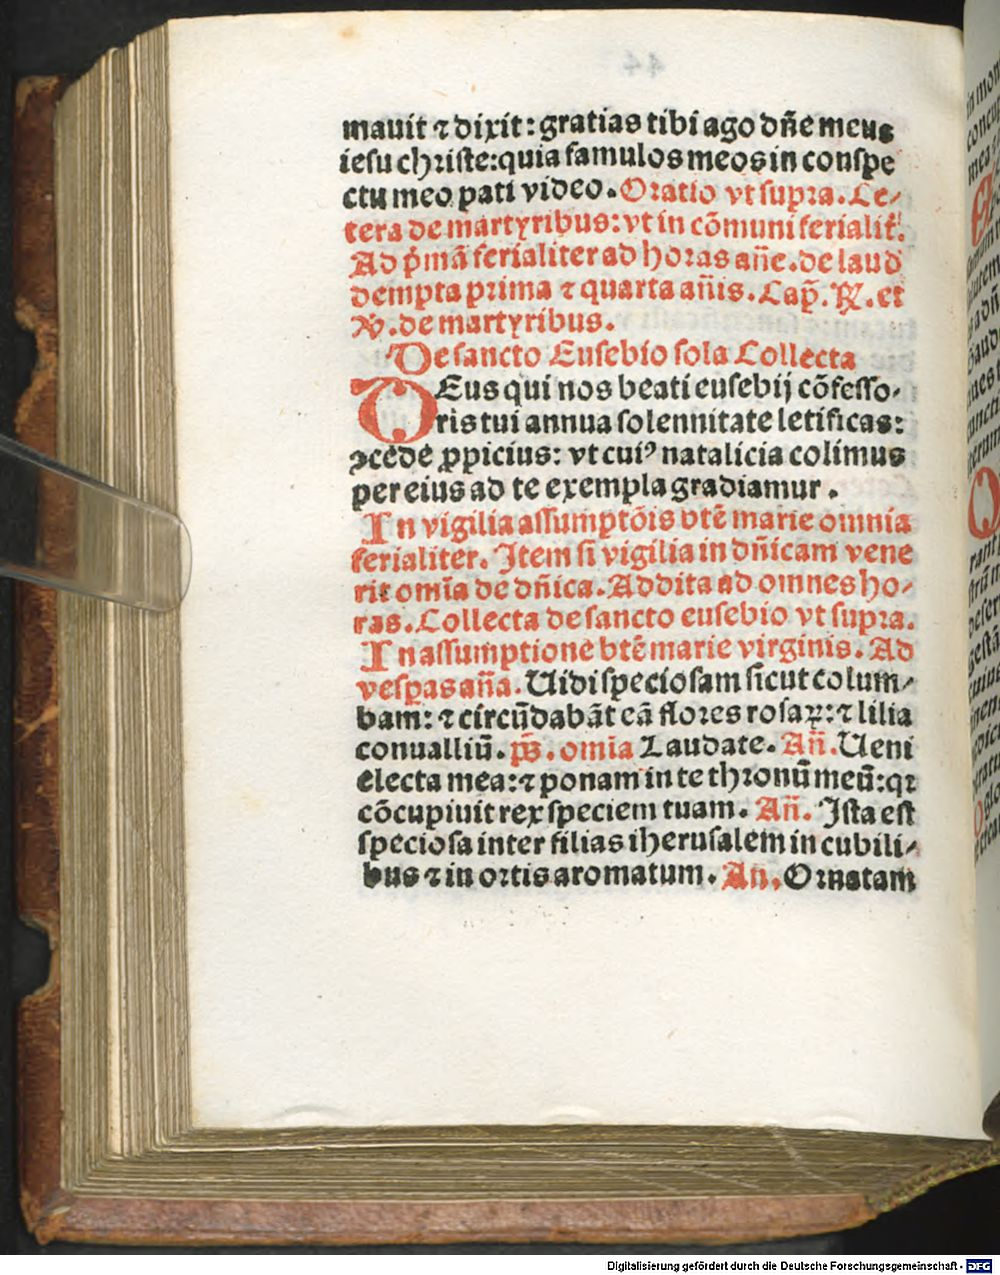 mauit ⁊ dixit: gratias tibi ago dñe meus
iesu christe: quia famulos meos in conspe
ctu meo pati video. Oratio vt supra. Ce⸗
tera de martyribus: vt in cõmuni ferialit̃.
Ad p̃mã ferialiter ad horas añe. de laud
dempta prima ⁊ quarta añis. Cap̃. ℟. et
℣. de martyribus.
De sancto Eusebio sola Collecta
DEus qui nos beati eusebij cõfesso⸗
ris tui annua solennitate letificas:
ꝯcede ꝓpicius: vt cuiꝰ natalicia colimus
per eius ad te exempla gradiamur.
In vigilia assumptõis btẽ marie omnia
ferialiter. Item si vigilia in dñicam vene
rit omĩa de dñica. Addita ad omnes ho⸗
ras. Collecta de sancto eusebio vt supra.
In assumptione btẽ marie virginis. Ad
vesp̃as añã. Uidi speciosam sicut colum⸗
bam: ⁊ circũdabãt eã flores rosaꝝ: ⁊ lilia
conualliũ. p̃s. omĩa Laudate. Añ. Ueni
electa mea: ⁊ ponam in te thronũ meũ: qꝛ
cõcupiuit rex speciem tuam. Añ. Ista est
speciosa inter filias iherusalem in cubili⸗
bus ⁊ in ortis aromatum. An. Ornatam
Digitalisierung gefördert durch die Deutsche Forschungsgemeinschaft - DFG